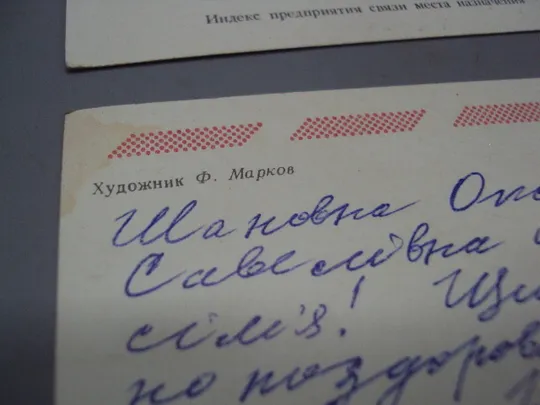 Индекс предприятия связи места назначения
Художник Ф. Марков
Шановна
Савелівна
сім'я! Щи
но поздоров